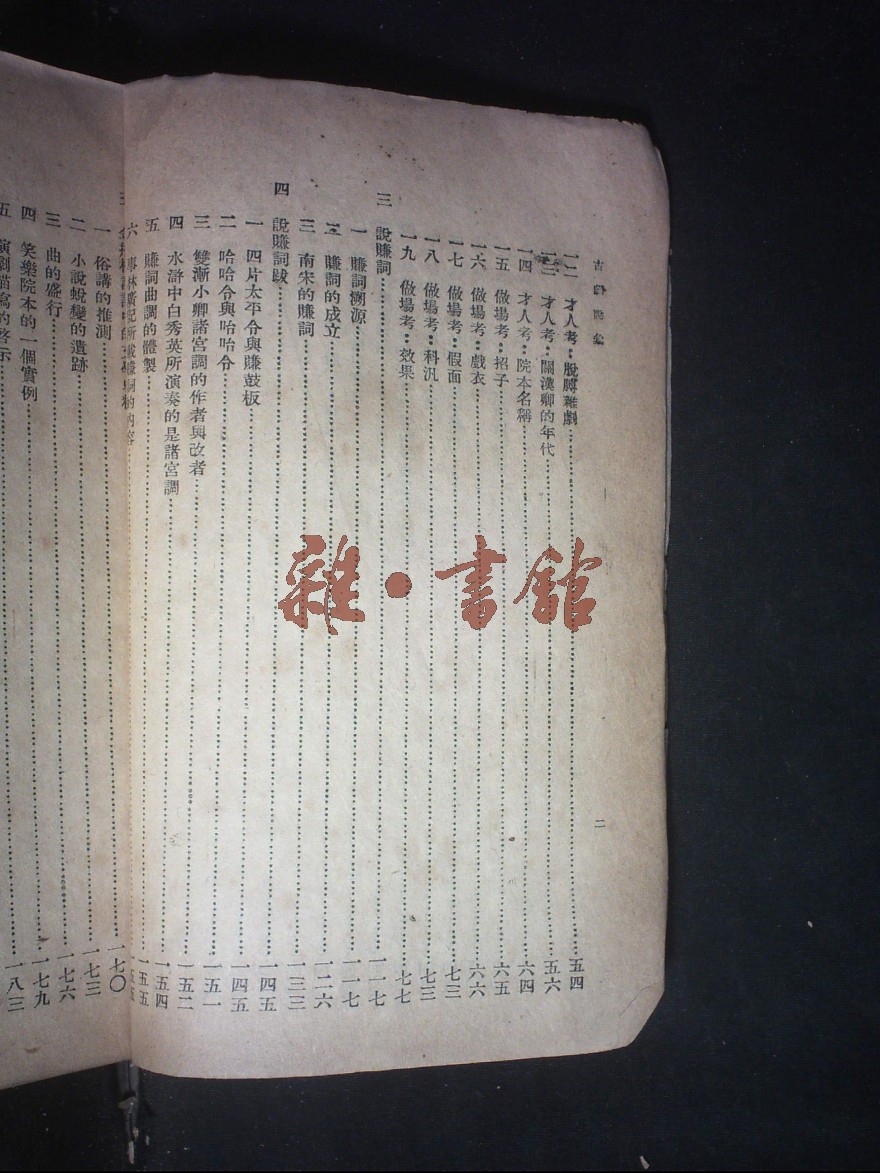 古劇說彙
二
一二 才人考：脫膊雜劇 五四
一三 才人考：關漢卿的年代 五六
一四 才人考：院本名稱 六四
一五 做場考：招子 六五
一六 做場考：戲衣 六六
一七 做場考：假面 七三
一八 做場考：科汎 七三
一九 做場考：效果 七七
三 說賺詞 一一七
一 賺詞溯源 一一七
二 賺詞的成立 一二六
三 南宋的賺詞 一三三
四 說賺詞跋 一四五
一 四片太平令與賺鼓板 一四五
二 哈哈令與哈哈令 一五一
三 雙漸小卿諸宮調的作者與改者 一五二
四 水滸中白秀英所演奏的是諸宮調 一五四
五 賺詞曲調的體製 一五五
六 事林廣記所載賺詞的內容 一五五
一 俗講的推測 一七〇
二 小說蛻變的遺跡 一七三
三 曲的盛行 一七六
四 笑樂院本的一個實例 一七九
五 演劇描寫的啓示 一八三
雜·書館